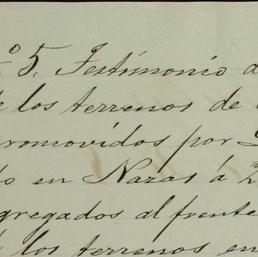 º 5. Testimonio d
e los terrenos de
romovidos por
do en Nazas á 2
gregados al frente
é los terrenos en